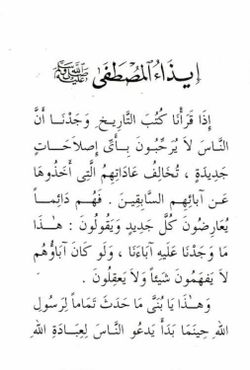 إِيذَاءُ الْمُصْطَفَى ﷺ
إِذَا قَرَأْنَا كُتُبَ التَّارِيخِ وَجَدْنَا أَنَّ
النَّاسَ لَا يُرَحِّبُونَ بِأَيِّ إِصْلَاحَاتٍ
جَدِيدَةٍ ، تُخَالِفُ عَادَاتِهِمُ الَّتِي أَخَذُوهَا
عَنْ آبَائِهِمِ السَّابِقِينَ . فَهُم دَائِماً
يُعَارِضُونَ كُلَّ جَدِيدٍ وَيَقُولُونَ : هٰذَا
مَا وَجَدْنَا عَلَيْهِ آبَاءَنَا ، وَلَو كَانَ آبَاؤُهُم
لَا يَفْهَمُونَ شَيْئاً وَلَا يَعْقِلُونَ .
وَهٰذَا يَا بُنَيَّ مَا حَدَثَ تَمَاماً لِرَسُولِ
اللهِ حِينَمَا بَدَأَ يَدعُو النَّاسَ لِعِبَادَةِ اللهِ